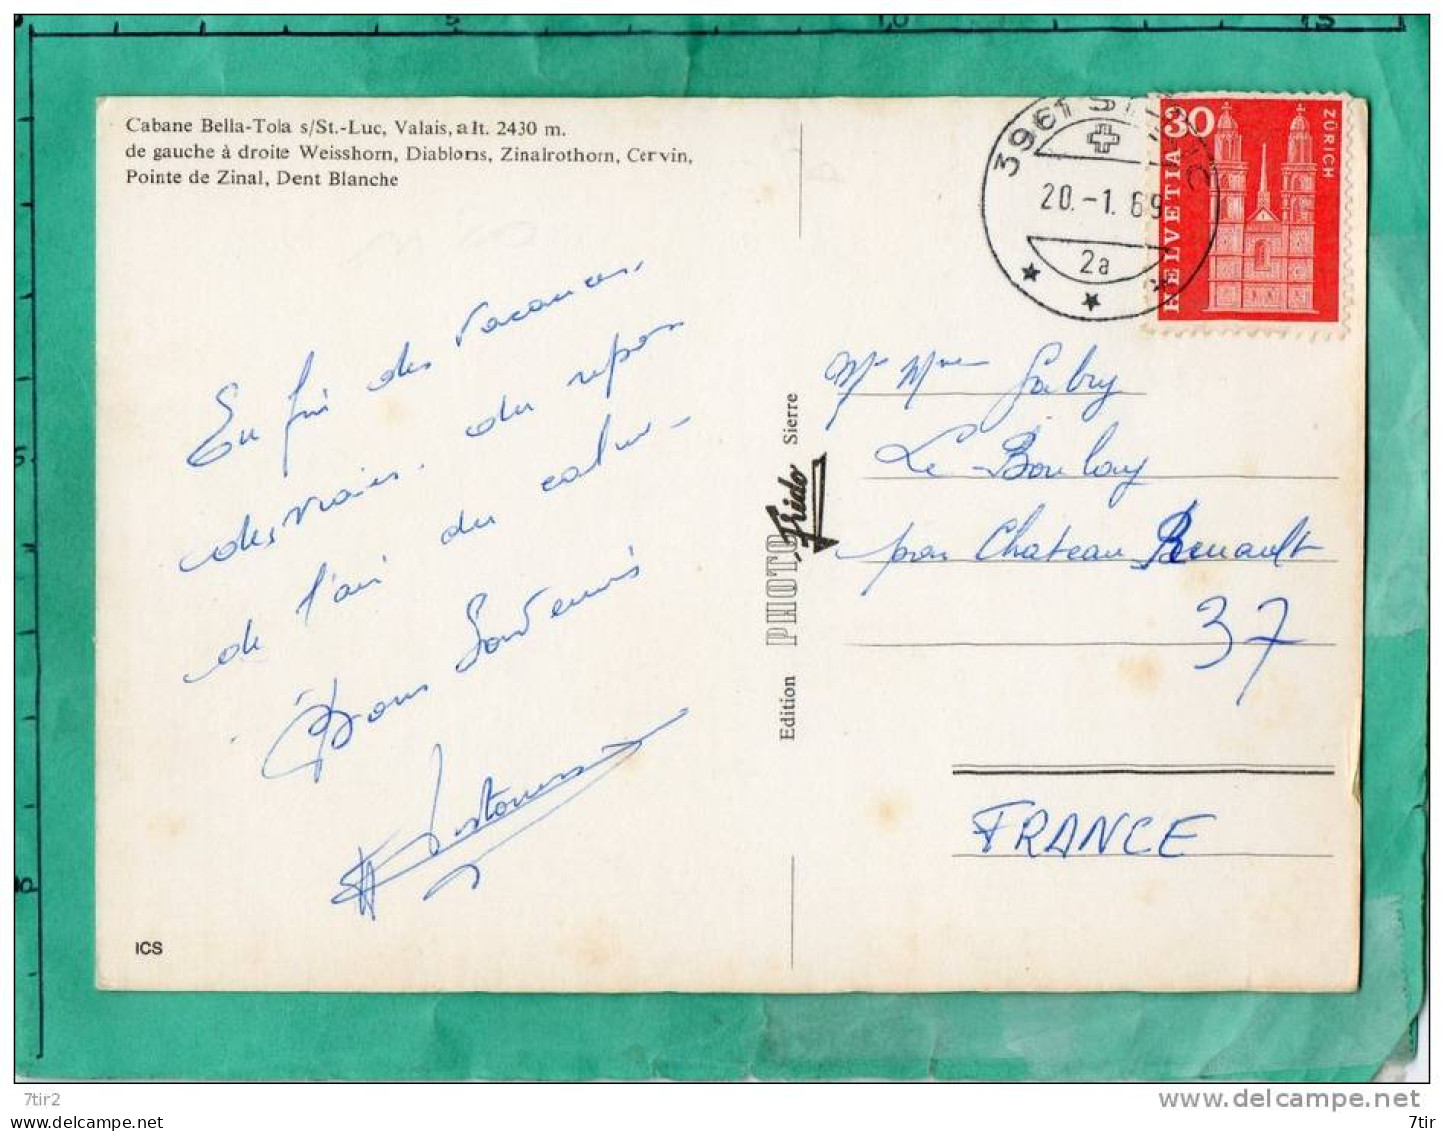 5
10
15
Cabane Bella-Tola s/St.-Luc, Valais, alt. 2430 m.
de gauche à droite Weisshorn, Diablons, Zinalrothorn, Cervin,
Pointe de Zinal, Dent Blanche
3961 ST-LUC
20.-1.69
2a
30
HELVETIA
ZÜRICH
En fin des vacances,
des vraies. du repos
de l'air du calme.
Bons Souvenirs
Edition PHOTO Frido Sierre
Mr Mme Gabry
Le Boulay
par Chateau Renault
37
FRANCE
ICS
delcampe.net
7tir2
7tir